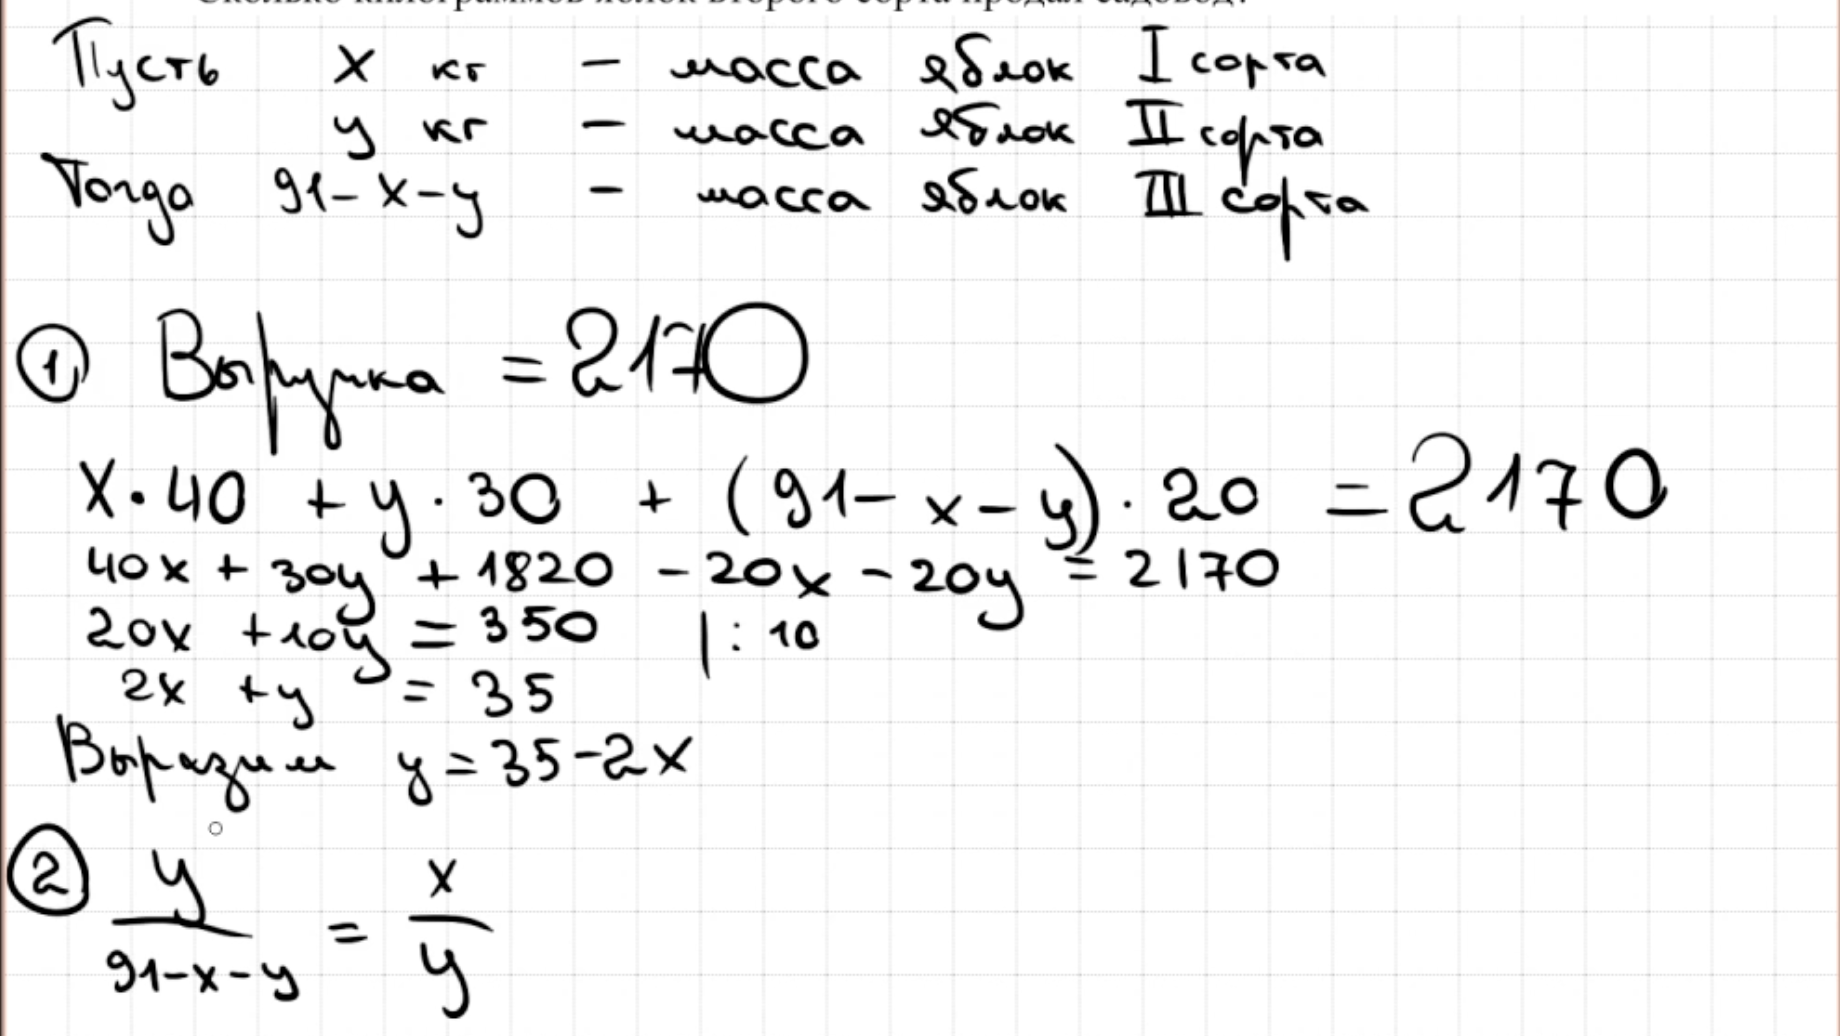 Сколько килограммов яблок второго сорта продал садовод?
Пусть x кг – масса яблок I сорта
y кг – масса яблок II сорта
Тогда 91-x-y – масса яблок III сорта
① Выручка = 2170
x·40 + y·30 + (91-x-y)·20 = 2170
40x + 30y + 1820 - 20x - 20y = 2170
20x + 10y = 350 |:10
2x + y = 35
Выразим y = 35-2x
② y/(91-x-y) = x/y